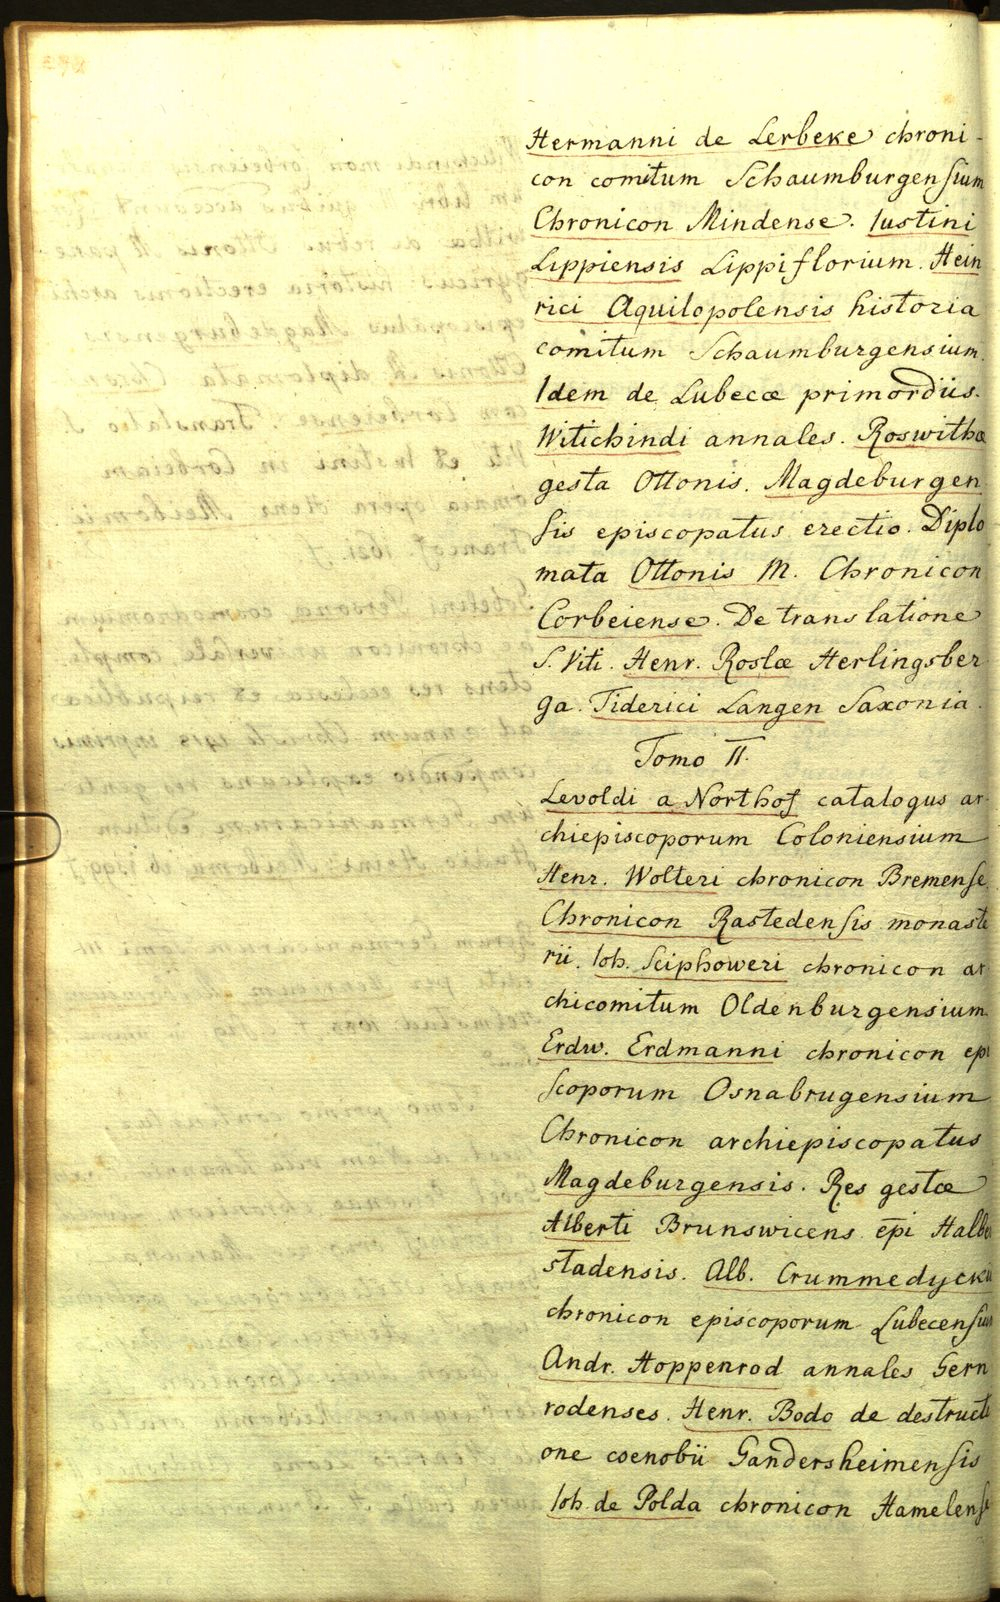 Hermanni de Lerbeke chroni-
con comitum Schaumburgensium
Chronicon Mindense. Iustini
Lippiensis Lippiflorium. Hein
rici Aquilopolensis historia
comitum Schaumburgensium.
Idem de Lubecæ primordiis.
Witichindi annales. Roswithæ
gesta Ottonis. Magdeburgen
sis episcopatus erectio. Diplo
mata Ottonis M. Chronicon
Corbeiense. De translatione
S. Viti. Henr. Roslæ Herlingsber
ga. Tiderici Langen Saxonia.
Tomo II.
Levoldi a Northof catalogus ar-
chiepiscoporum Coloniensium
Henr. Wolteri chronicon Bremense.
Chronicon Rastedensis monaste
rii. Ioh. Sciphoweri chronicon ar
chicomitum Oldenburgensium.
Erdw. Erdmanni chronicon epi
scoporum Osnabrugensium
Chronicon archiepiscopatus
Magdeburgensis. Res gestæ
Alberti Brunswicens epi Halber
stadensis. Alb. Crummedyckii
chronicon episcoporum Lubecensium
Andr. Hoppenrod annales Gern
rodenses. Henr. Bodo de destructi
one coenobii Gandersheimensis
Ioh. de Polda chronicon Hamelense